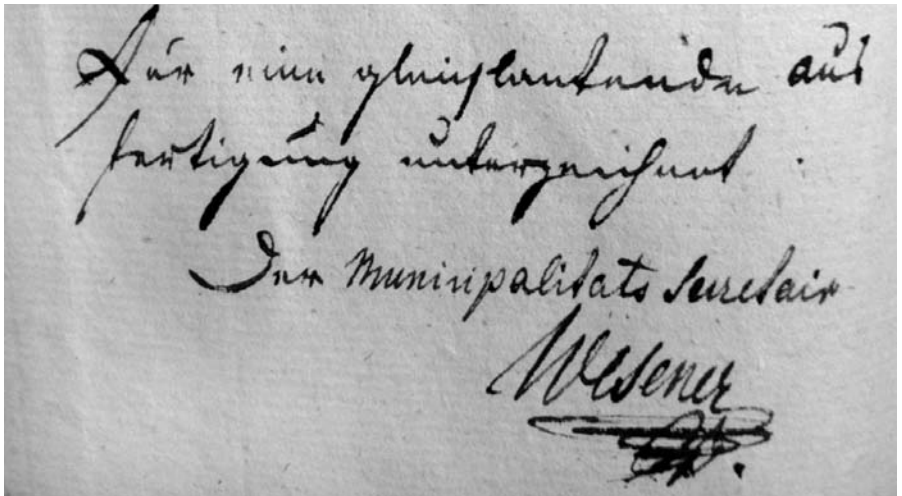 Für eine gleichlautende aus
fertigung unterzeichnet.
Der Municipalitats Secretair
Wesener